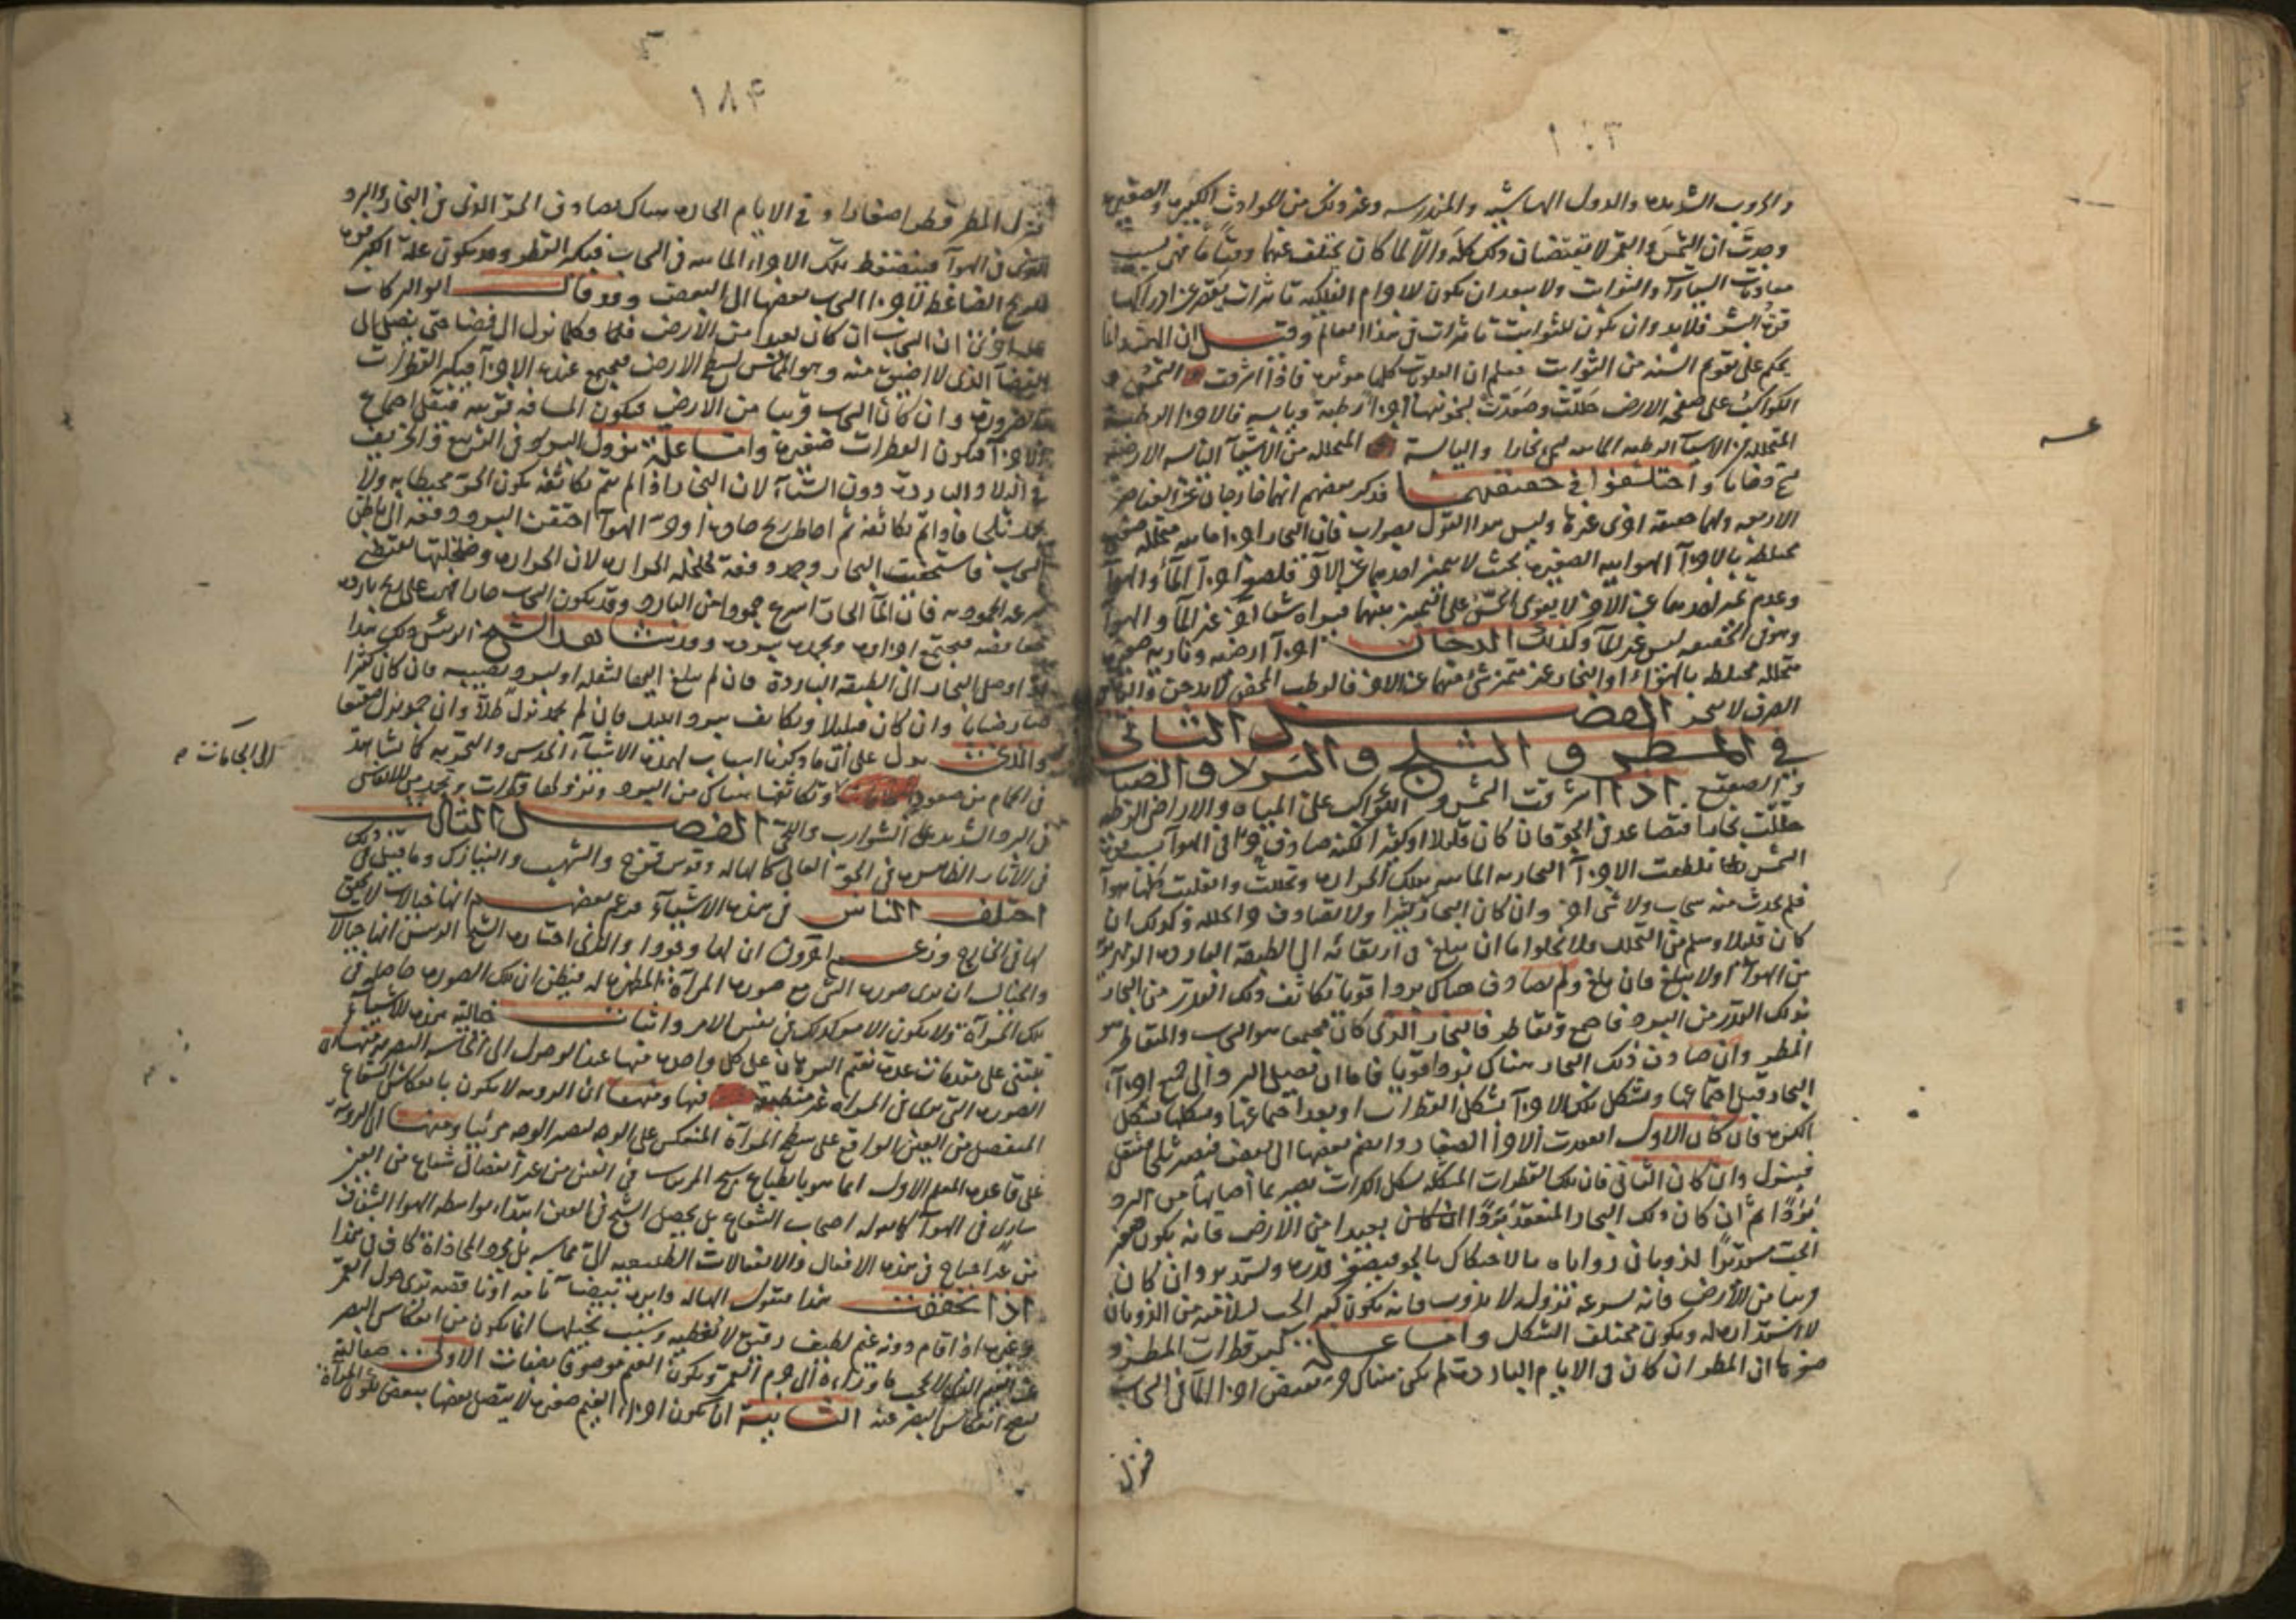 ١٠٣
والحروب الشديدة والدول الهاشمية والمندرسة وغير ذلك من الحوادث الكبيرة والصغيرة
وجدت ان الشمس والقمر لا يقتضيان ذلك كله والا لما كان يختلف عنهما وقتا ما فهى بسبب
السيارات والثوابت ولا يبعد ان يكون للاجرام الفلكية تاثيرات يقصر عن ادراكها
قوة البشر فلا بد وان يكون للثوابت تاثيرات فى هذا العالم وقيل ان الهند انما
يحكم على تقويم السنة من الثوابت فعلم ان العلويات كلها موثرة فاذا اشرقت الشمس و
الكواكب على صفحة الارض حللت وصعدت بسخونتها اجزا رطبة ويابسة فالاجزا الرطبة
المتحللة من الاشيا الرطبة المائية تسمى بخارا واليابسة المتحللة من الاشيآ اليابسة الارضية
تسمى دخانا واختلفوا فى حقيقتهما فذكر بعضهم انهما خارجان عن العناصر
الاربعة ولهما حقيقة اخرى غيرها وليس هذا القول بصواب فان البخار اجزا مائية متحللة صغيرة
مختلطة بالاجزآ الهوائية الصغيرة بحيث لا يتميز احدهما عن الآخر فلصغر اجزآ المآ والهوآ
وعدم تميز احدهما عن الاخر لا يقوى الحس على التمييز بينهما فيراه شيئا آخر غير المآ والهوآ
وهو فى الحقيقة ليس غير المآ وكذلك الدخان اجزآ ارضية ونارية صغيرة
متحللة مختلطة بالهوآ او البخار غير متميز شئ منها عن الاخر فالرطب المحض لا يدخن واليابس
الصرف لا يتبخر الفصل الثانى
فى المطر و الثلج و البرد والضباب
و الصقيع اذا اشرقت الشمس و الكواكب على المياه والاراضى الرطبة
حللت بخارا فتصاعد فى الجو فان كان قليلا او كثيرا لكنه صادف حرا فى الهوآ بسبب قوة
الشمس تلطفت الاجزآ البخارية المائية بتلك الحرارة وتحللت وانقلبت كلها هوآ
فلم يحدث منه سحاب ولا شى اخر وان كان البخار كثيرا ولا تصادف و كذلك ان
كان قليلا وسلم من التحلل فلا يخلوا ما ان يبلغ فى ارتقائه الى الطبقة الباردة الزمهريرية
من الهوآ او لا يبلغ فان بلغ ولم يصادف هناك بردا قويا تكاثف ذلك القدر من البخار
بذلك القدر من البرد فاجتمع وتقاطر فالبخار الذى كان مجتمعا هو السحاب والمتقاطر هو
المطر وان صادف ذلك البخار هناك بردا قويا فاما ان يصل البرد الى جميع اجزآء
البخار قبل اجتماعها وتشكل تلك الاجزآ بشكل القطرات او بعد اجتماعها وتشكلها بشكل
الكرة فان كان الاول انعقدت الاجزآ الصغار وانضم بعضها الى بعض فيصير ثلجا فيثقل
فينزل وان كان الثانى فان تلك القطرات المتشكلة بشكل الكرات تصير بما اصابها من البرد
بَرَدًا ثم ان كان ذلك البخار المنعقد بَرَدًا بعيدا من الارض فانه يكون صغير
الحب مستديرا لذوبان زواياه بالاحتكاك بالجو فيصغر قدره ويستدير وان كان
قريبا من الارض فانه بسرعة نزوله لا يذوب فانه يكون كبير الحب لسلامته من الذوبان
لا استدارة له ويكون مختلف الشكل واما علة كبر قطرات المطر و
صغرها ان المطر ان كان فى الايام الباردة لم يكن هناك حر يقبض اجزا المآ فى السحاب
فينزل
١٨٤
فينزل المطر قطرا صغارا و فى الايام الحارة هناك يصادف الحر الذى فى البخار والبرد
الذى فى الهوآ فينضغط بتلك الاجزآ المائية فى السحاب فيكبر القطر وقد يكون علة الكبر قوة
الريح الضاغطة لاجزا السحاب بعضها الى البعض وقد قال ابو البركات
ان السحاب ان كان بعيدا من الارض فكلما نزل الى فضا حتى يصل الى
الفضآ الذى لا اضيق منه وهو المماس لسطح الارض فيجتمع عنده الاجزآ فيكبر القطرات
بالضرورة وان كان السحاب قريبا من الارض فيكون المسافة قريبة فيقل اجتماع
الاجزآ فيكون القطرات صغيرة واما علة نزول البرد فى الربيع والخريف
فى البلاد الباردة دون الشتآ لان البخار اذا لم يتم تكاثفه يكون الحر محيطا به ولا
يجمد ثلجا فاذا تم تكاثفه ثم احاط ريح حارة او حر الهوآ احتقن البرد دفعة الى باطن
السحاب فاستحصف البخار وجمد دفعة لخلخلة الحرارة لان الحرارة وخلخلتها تقتضى
سرعة الجمودية فان المآ الحار اسرع جمودا من البارد وقد يكون السحاب حارا تهب عليه ريح باردة
فيجتمع اجزاوه ويجمد ببرده وقد شاهد الشيخ الرئيس ذلك هذا
اذا وصل البخار الى الطبقة الباردة فان لم يبلغ اليها لثقله او لبرد يصيبه فان كان كثيرا
صار ضبابا وان كان قليلا وتكاثف ببرد الليل فان لم يجمد نزل طلا وان جمد نزل صقيعا
والذى يدل على ان ما ذكرنا اسباب لهذه الاشيآ الحدس والتجربة كما شاهد
فى الحمام من صعود وتكاثفها هناك من البرد ونزولها قطرات ويجمد من الانفاس
فى البرد الشديد على الشوارب واللحى الفصل الثالث
فى الاثار الظاهرة فى الجو العالى كالهالة وقوس قزح والشهب والنيازك وما قيل فى ذلك
اختلف الناس فى هذه الاشيآ فزعم بعضهم انها خيالات لا تحقق
لها فى الخارج وزعم اخرون ان لها وجودا والذى اختاره الشيخ الرئيس انها خيالات
والخيال ان يرى صورة الشى مع صورة المرآة المظهرة له فيظن ان تلك الصورة حاصلة فى
تلك المرآة ولا يكون الامر كذلك فى نفس الامر واثبات خيالية هذه الاشيآ
يبتنى على مقدمات عدة يقتم البرهان على كل واحدة منها عند الوصول الى الحاسة البصرية منها ان
الصورة التى ترى فى المرآة غير منطبعة فيها ومنها ان الروية لا يكون بانعكاس الشعاع
المنفصل من العين الواقع على سطح المرآة المنعكس على الوجه ليصير الوجه مرئيا ومنها ان الروية
على قاعدة المعلم الاول انما هو بانطباع شبح المرئى فى العين من غير انفصال شعاع من العين
سارى فى الهوآ كما يقوله اصحاب الشعاع بل يحصل الشبح فى العين ابتداء بواسطة الهوا الشفاف
من غير احتياج فى هذه الافعال والانفعالات الطبيعية الى مماسة بل مجرد المحاذاة كاف فى هذا
اذا تحققت هذا فنقول الهالة دايرة بيضا تامة او ناقصة ترى حول القمر
وغيره اذا قام دونه غيم لطيف رقيق لا يغطيه وسبب تخيلها انما يكون من انعكاس البصر
عن الغيم الذى لا يحجب ما وراءه الى جرم القمر ويكون الغيم موصوفا بصفات الاولى صقالية
ليصح انعكاس البصر عنه الثانية ان يكون اجزاء الغيم صغيرة لا يتصل بعضها ببعض